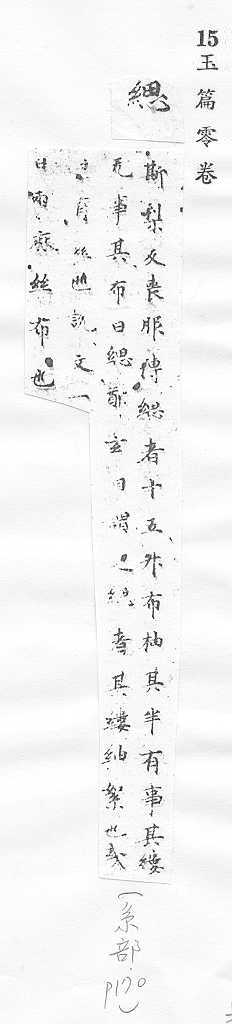 15玉篇零卷
緦
斯梨反喪服傳緦者十五升布柚其半有事其縷
无事其布曰緦鄭玄曰謂之緦者其縷細絮也或
曰有絲也說文一
曰兩麻絲布也
(糸部 p170)